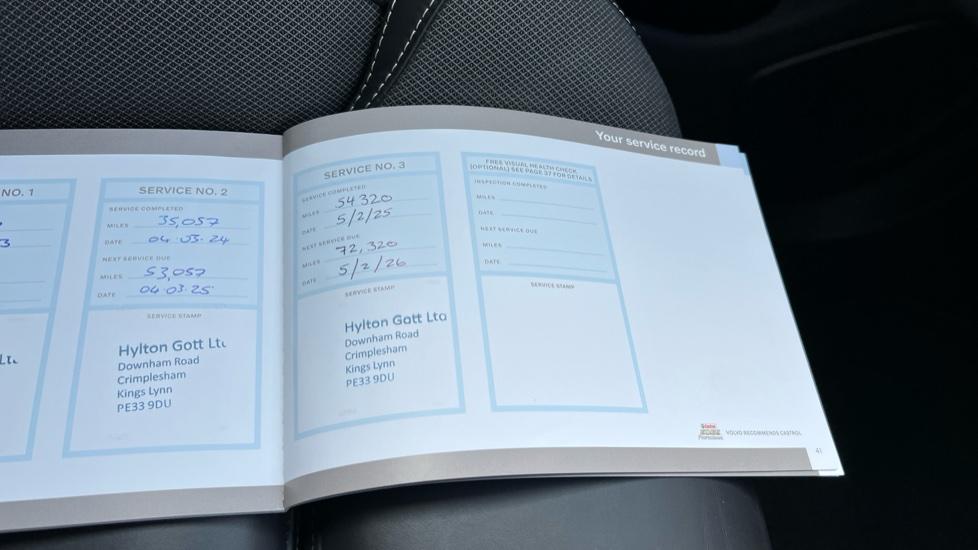 Your service record
NO. 1
3
Lt
SERVICE NO. 2
SERVICE COMPLETED
MILES 35,057
DATE 04.03.24
NEXT SERVICE DUE
MILES 53,057
DATE 04.03.25
SERVICE STAMP
Hylton Gott Lt
Downham Road
Crimplesham
Kings Lynn
PE33 9DU
SERVICE NO. 3
SERVICE COMPLETED
MILES 54320
DATE 5/2/25
NEXT SERVICE DUE
MILES 72,320
DATE 5/2/26
SERVICE STAMP
Hylton Gott Ltd
Downham Road
Crimplesham
Kings Lynn
PE33 9DU
FREE VISUAL HEALTH CHECK
(OPTIONAL) SEE PAGE 37 FOR DETAILS
INSPECTION COMPLETED
MILES
DATE
NEXT SERVICE DUE
MILES
DATE
SERVICE STAMP
Castrol
EDGE
Professional
VOLVO RECOMMENDS CASTROL
41